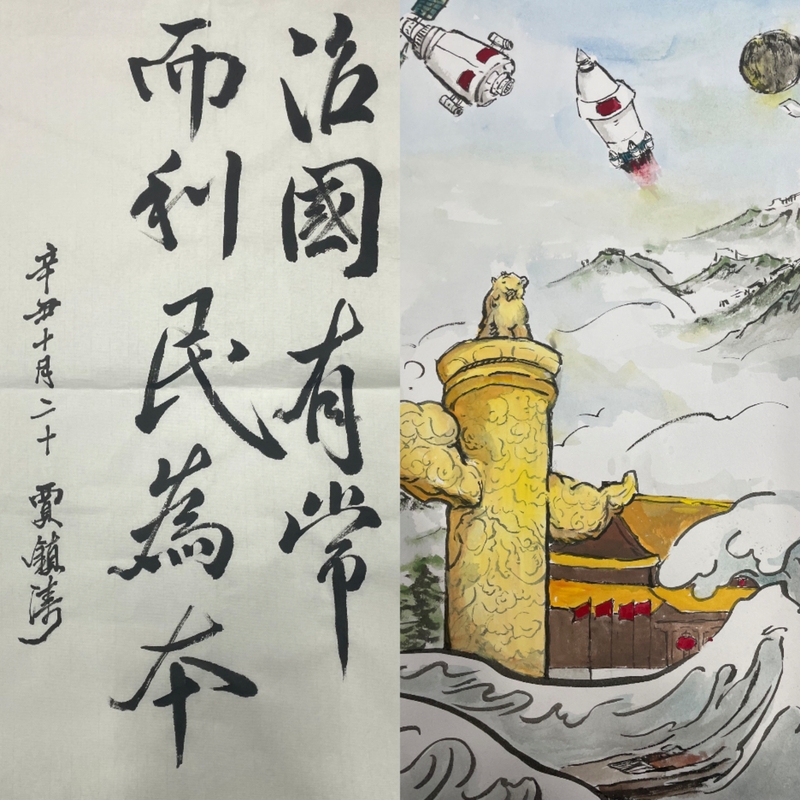 治國有常
而利民為本
辛丑十月二十 賈鎮濤